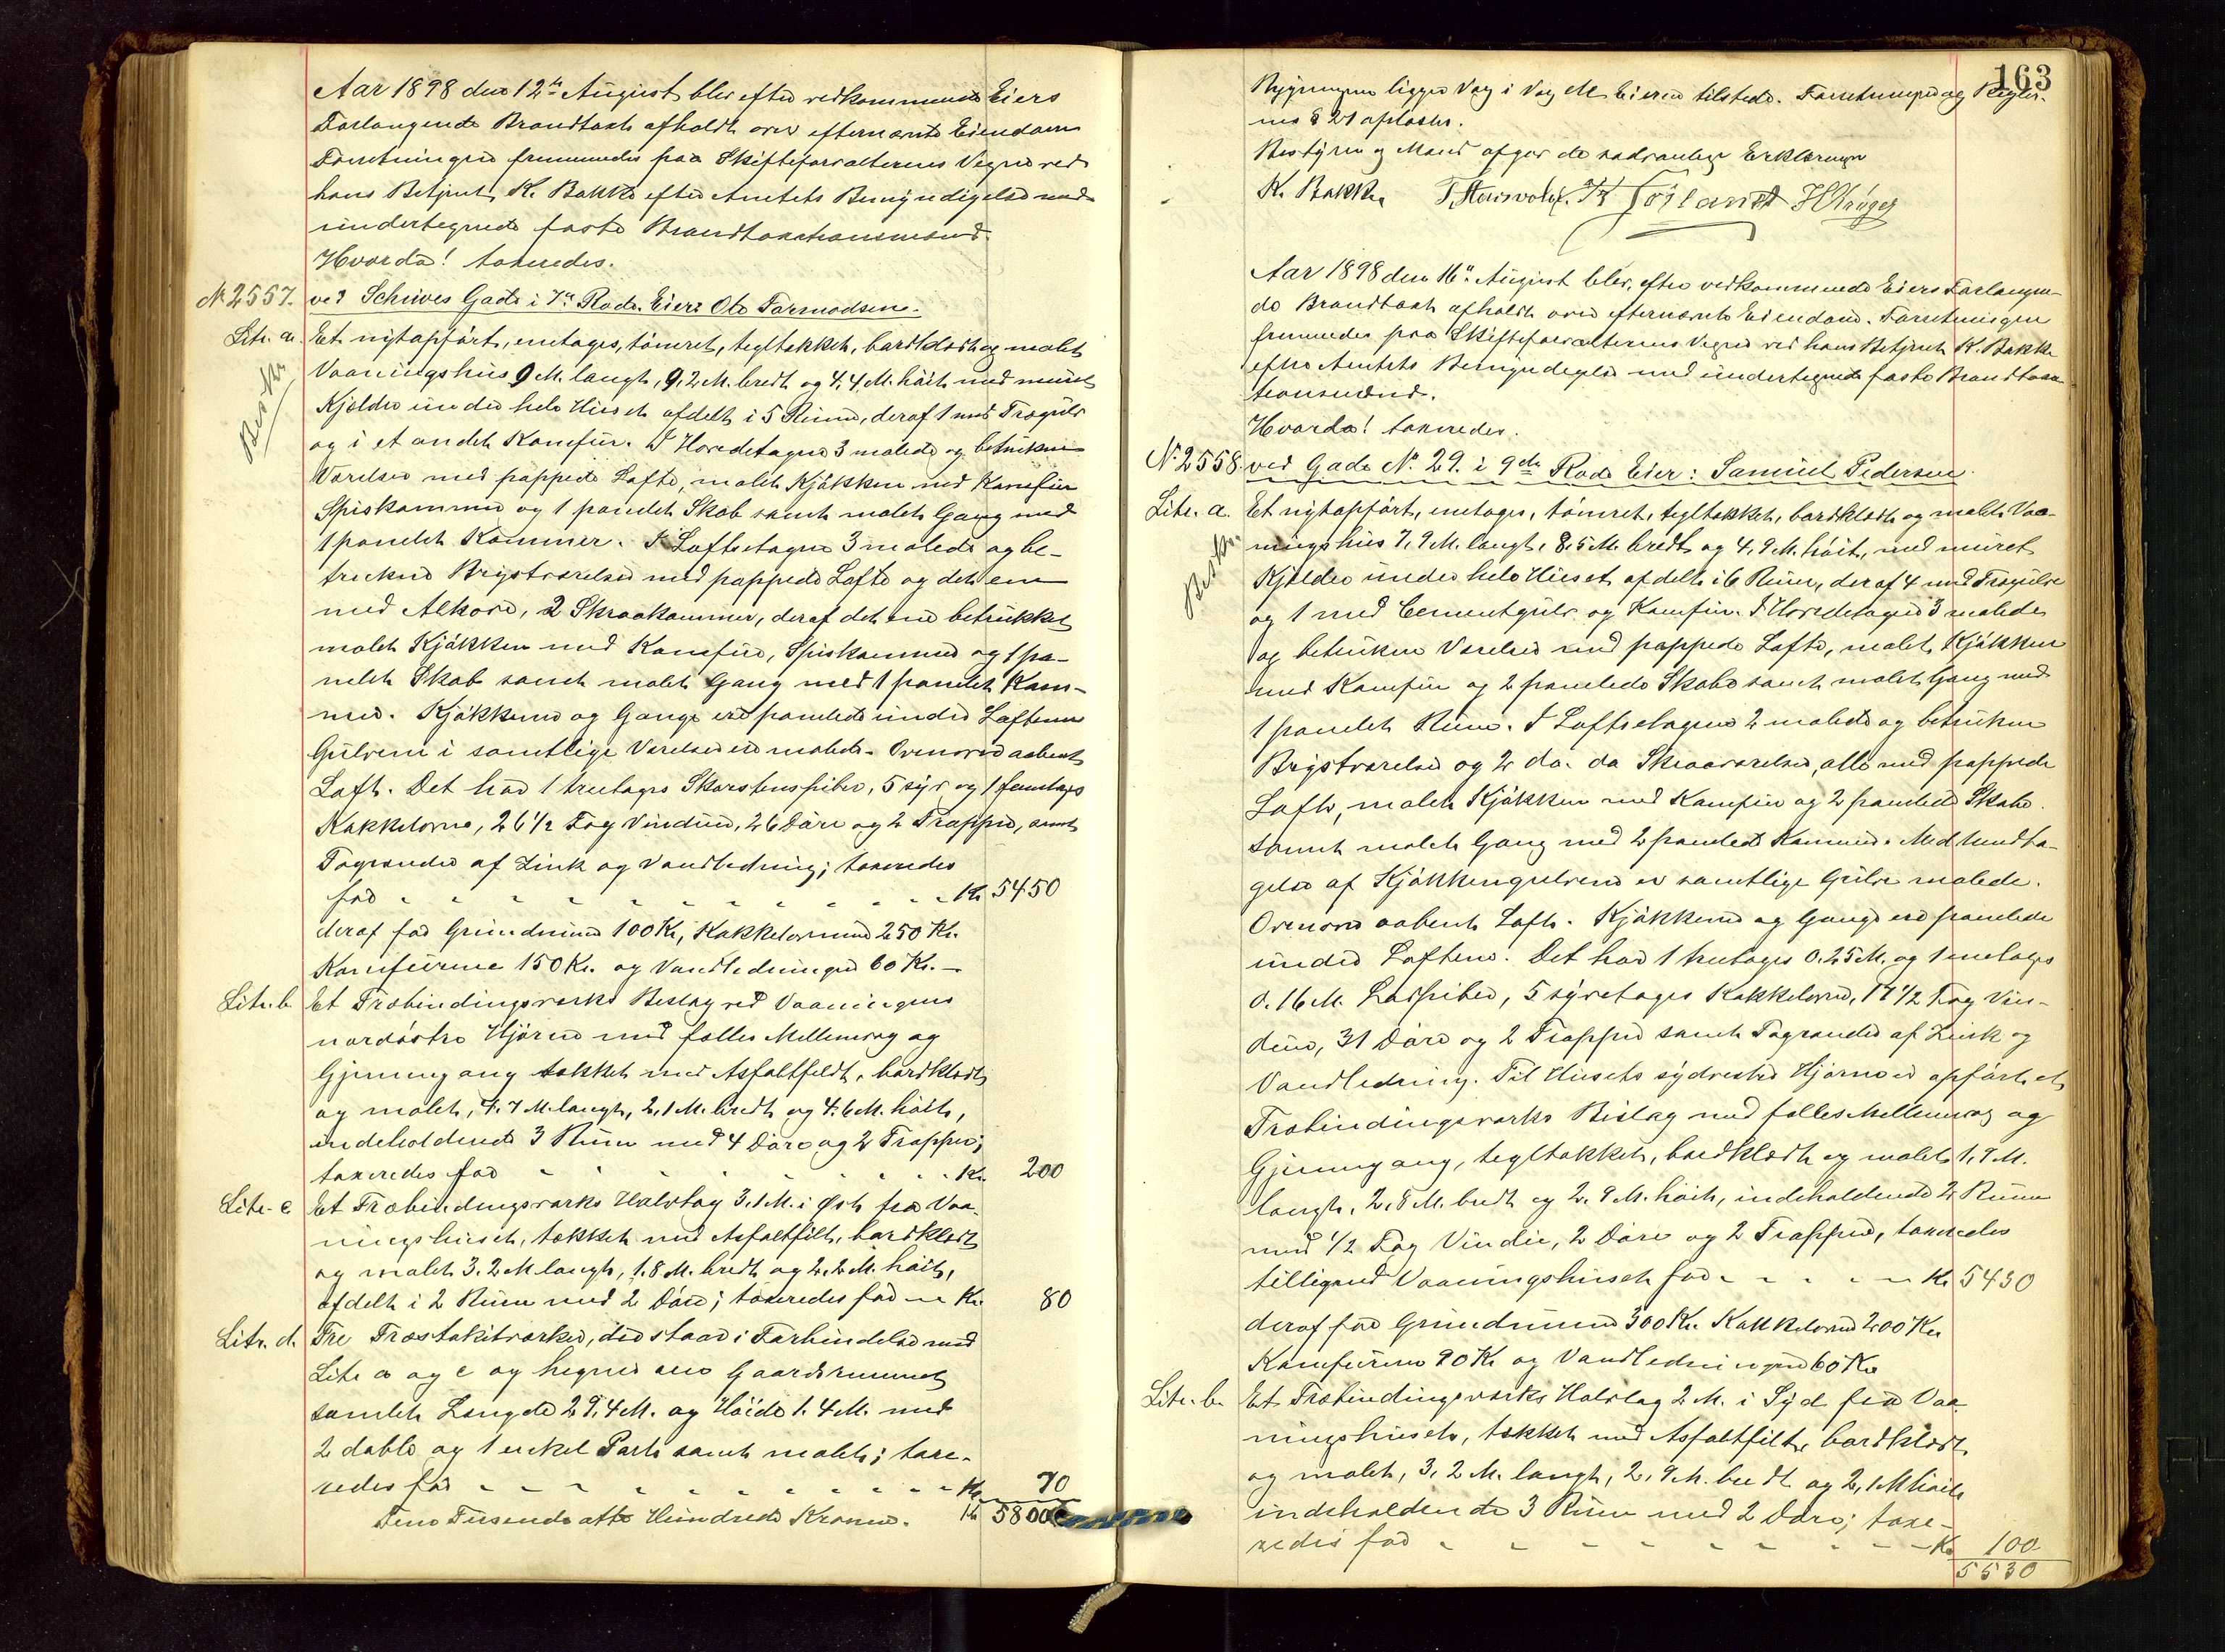 Aar 1898 den 12te August blev efter vedkommende Eiers
Forlangende Brandtaxt afholdt over efternævnte Eiendom
Forretningen fremmedes paa Skifteforvalterens Vegne ved
hans Betjent K. Bakke efter Amtets Bemyndigelse med
undertegnede faste Brandtaxationsmænd.
Hvorda! taxeredes.
No 2557. ved Schives Gade i 7de Rode. Eier: Ole Tormodsen.
Litr. a. Et nytopført, enetages, tømret, tegltækket, bordklædt og malet
Vaaningshus 9 M. langt, 9,2 M. bredt og 4,4 M. høit med muret
Kjelder under hele Huset afdelt i 5 Rum, deraf 1 med Trægulv
og i et andet Komfur. I Hovedetagen 3 malede og betrukne
Værelser med pappede Lofte, malet Kjøkken med Komfur
Spiskammer og 1 panelet Skab samt malet Gang med
1 panelet Kammer. I Loftsetagen 3 malede og be-
trukne Brystværelser med pappede Lofte og det ene
med Alkove, 2 Skraakammer, deraf det ene betrukket
malet Kjøkken med Komfur, Spiskammer og 1 pa-
nelet Skab samt malet Gang med 1 panelet Kam-
mer. Kjøkkene og Gange ere panelede under Loftene
Gulvene i samtlige Værelser ere malede. Ovenover aabent
Loft. Det har 1 treetages Skorstenspibe, 5 syv og 1 femetages
Kakkelovne, 26 1/2 Fag Vinduer, 26 Døre og 2 Trapper, samt
Tagrender af Zink og Vandledning; taxeredes
for - - - - - - Kr. 5450
deraf for Grundmuren 100 Kr, Kakkelovnene 250 Kr.
Komfurene 150 Kr. og Vandledningen 60 Kr. -
Litr. b Et Træbindingsværks Bislag ved Vaaningens
nordøstre Hjørne med fælles Mellemvæg og
Gjennemgang tækket med Asfaltfildt, bordklædt
og malet, 4,7 M. langt, 2,1 M. bredt og 4,6 M. høit,
indeholdende 3 Rum med 4 Døre og 2 Trapper;
taxeredes for - - - - - Kr. 200
Litr. c Et Træbindingsværks Halvtag 3,1 M. i Øst fra Vaa-
ningshuset, tækket med Asfaltfilt, bordklædt
og malet 3,2 M langt, 1,8 M. bredt og 2,2 M. høit,
afdelt i 2 Rum med 2 Døre; taxeredes for - Kr. 80
Litr. d. Tre Træstakitværker, der staar i Forbindelse med
Litr a og c og hegner om Gaardsrummet
samlet Længde 29,4 M. og Høide 1,4 M. med
2 doble og 1 enkel Port samt malet; taxe-
redes for - - - - - Kr. 70
Fem Tusende otte Hundrede Kroner. Kr 5800
163
Bygningen ligger Væg i Væg Eieren tilstede. Forretningen og Regler-
nes § 21 oplæstes.
Bestyrer og Mænd afgav de sædvanlige Erklæringer
K. Bakke H Krüger
Aar 1898 den 16de August blev, efter vedkommende Eiers Forlangen-
de Brandtaxt afholdt over efternævnte Eiendom. Forretningen
fremmedes paa Skifteforvalterens Vegne ved hans Betjent K. Bakke
efter Amtets Bemyndigelse med undertegnede faste Brandtaxa-
tionsmænd.
Hvorda! taxeredes.
No 2558. ved Gade No 29. i 9de Rode Eier: Samuel Pedersen
Litr. a. Et nytopført, enetages, tømret, tegltækket, bordklædt og malet Vaa-
ningshus 7,9 M. langt, 8,5 M. bredt og 4,9 M. høit, med muret
Kjelder under hele Huset afdelt i 6 Rum, deraf 4 med Trægulve
og 1 med Cementgulv og Komfur. I Hovedetagen 3 malede
og betrukne Værelser med pappede Lofte, malet Kjøkken
med Komfur og 2 panelede Skabe samt malet Gang med
1 panelet Rum. I Loftsetagen 2 malede og betrukne
Brystværelser og 2 do. do Skraaværelser, alle med pappede
Lofte, malet Kjøkken med Komfur og 2 panelede Skabe
samt malet Gang med 2 panelede Kammer. Med Undta-
gelse af Kjøkkengulvene er samtlige Gulve malede.
Ovenover aabent Loft. Kjøkkene og Gange ere panelede
under Loftene. Det har 1 treetages 0,25 M. og 1 enetages
0,16 M. Luftpiber, 5 syvetages Kakkelovne, 17 1/2 Fag Vin-
duer, 31 Døre og 2 Trapper samt Tagrender af Zink og
Vandledning. Til Husets sydvestre Hjørne er opført et
Træbindingsværks Bislag med fælles Mellemvæg og
Gjennemgang, tegltækket, bordklædt og malet 1,7 M.
langt, 2,8 M. bredt og 2,9 M. høit, indeholdende 2 Rum
med 1/2 Fag Vindue, 2 Døre og 2 Trapper, taxeredes
tilligemed Vaaningshuset for - - - - Kr 5430
deraf for Grundmuren 300 Kr. Kakkelovnene 200 Kr
Komfurene 90 Kr og Vandledningen 60 Kr
Litr. b. Et Træbindingsværks Halvtag 2 M. i Syd fra Vaa
ningshuset, tækket med Asfaltfilt, bordklædt
og malet, 3,2 M. langt, 2,9 M. bredt og 2,1 M høit
indeholdende 3 Rum med 2 Døre; taxe-
redes for - - - - - Kr 100
5530